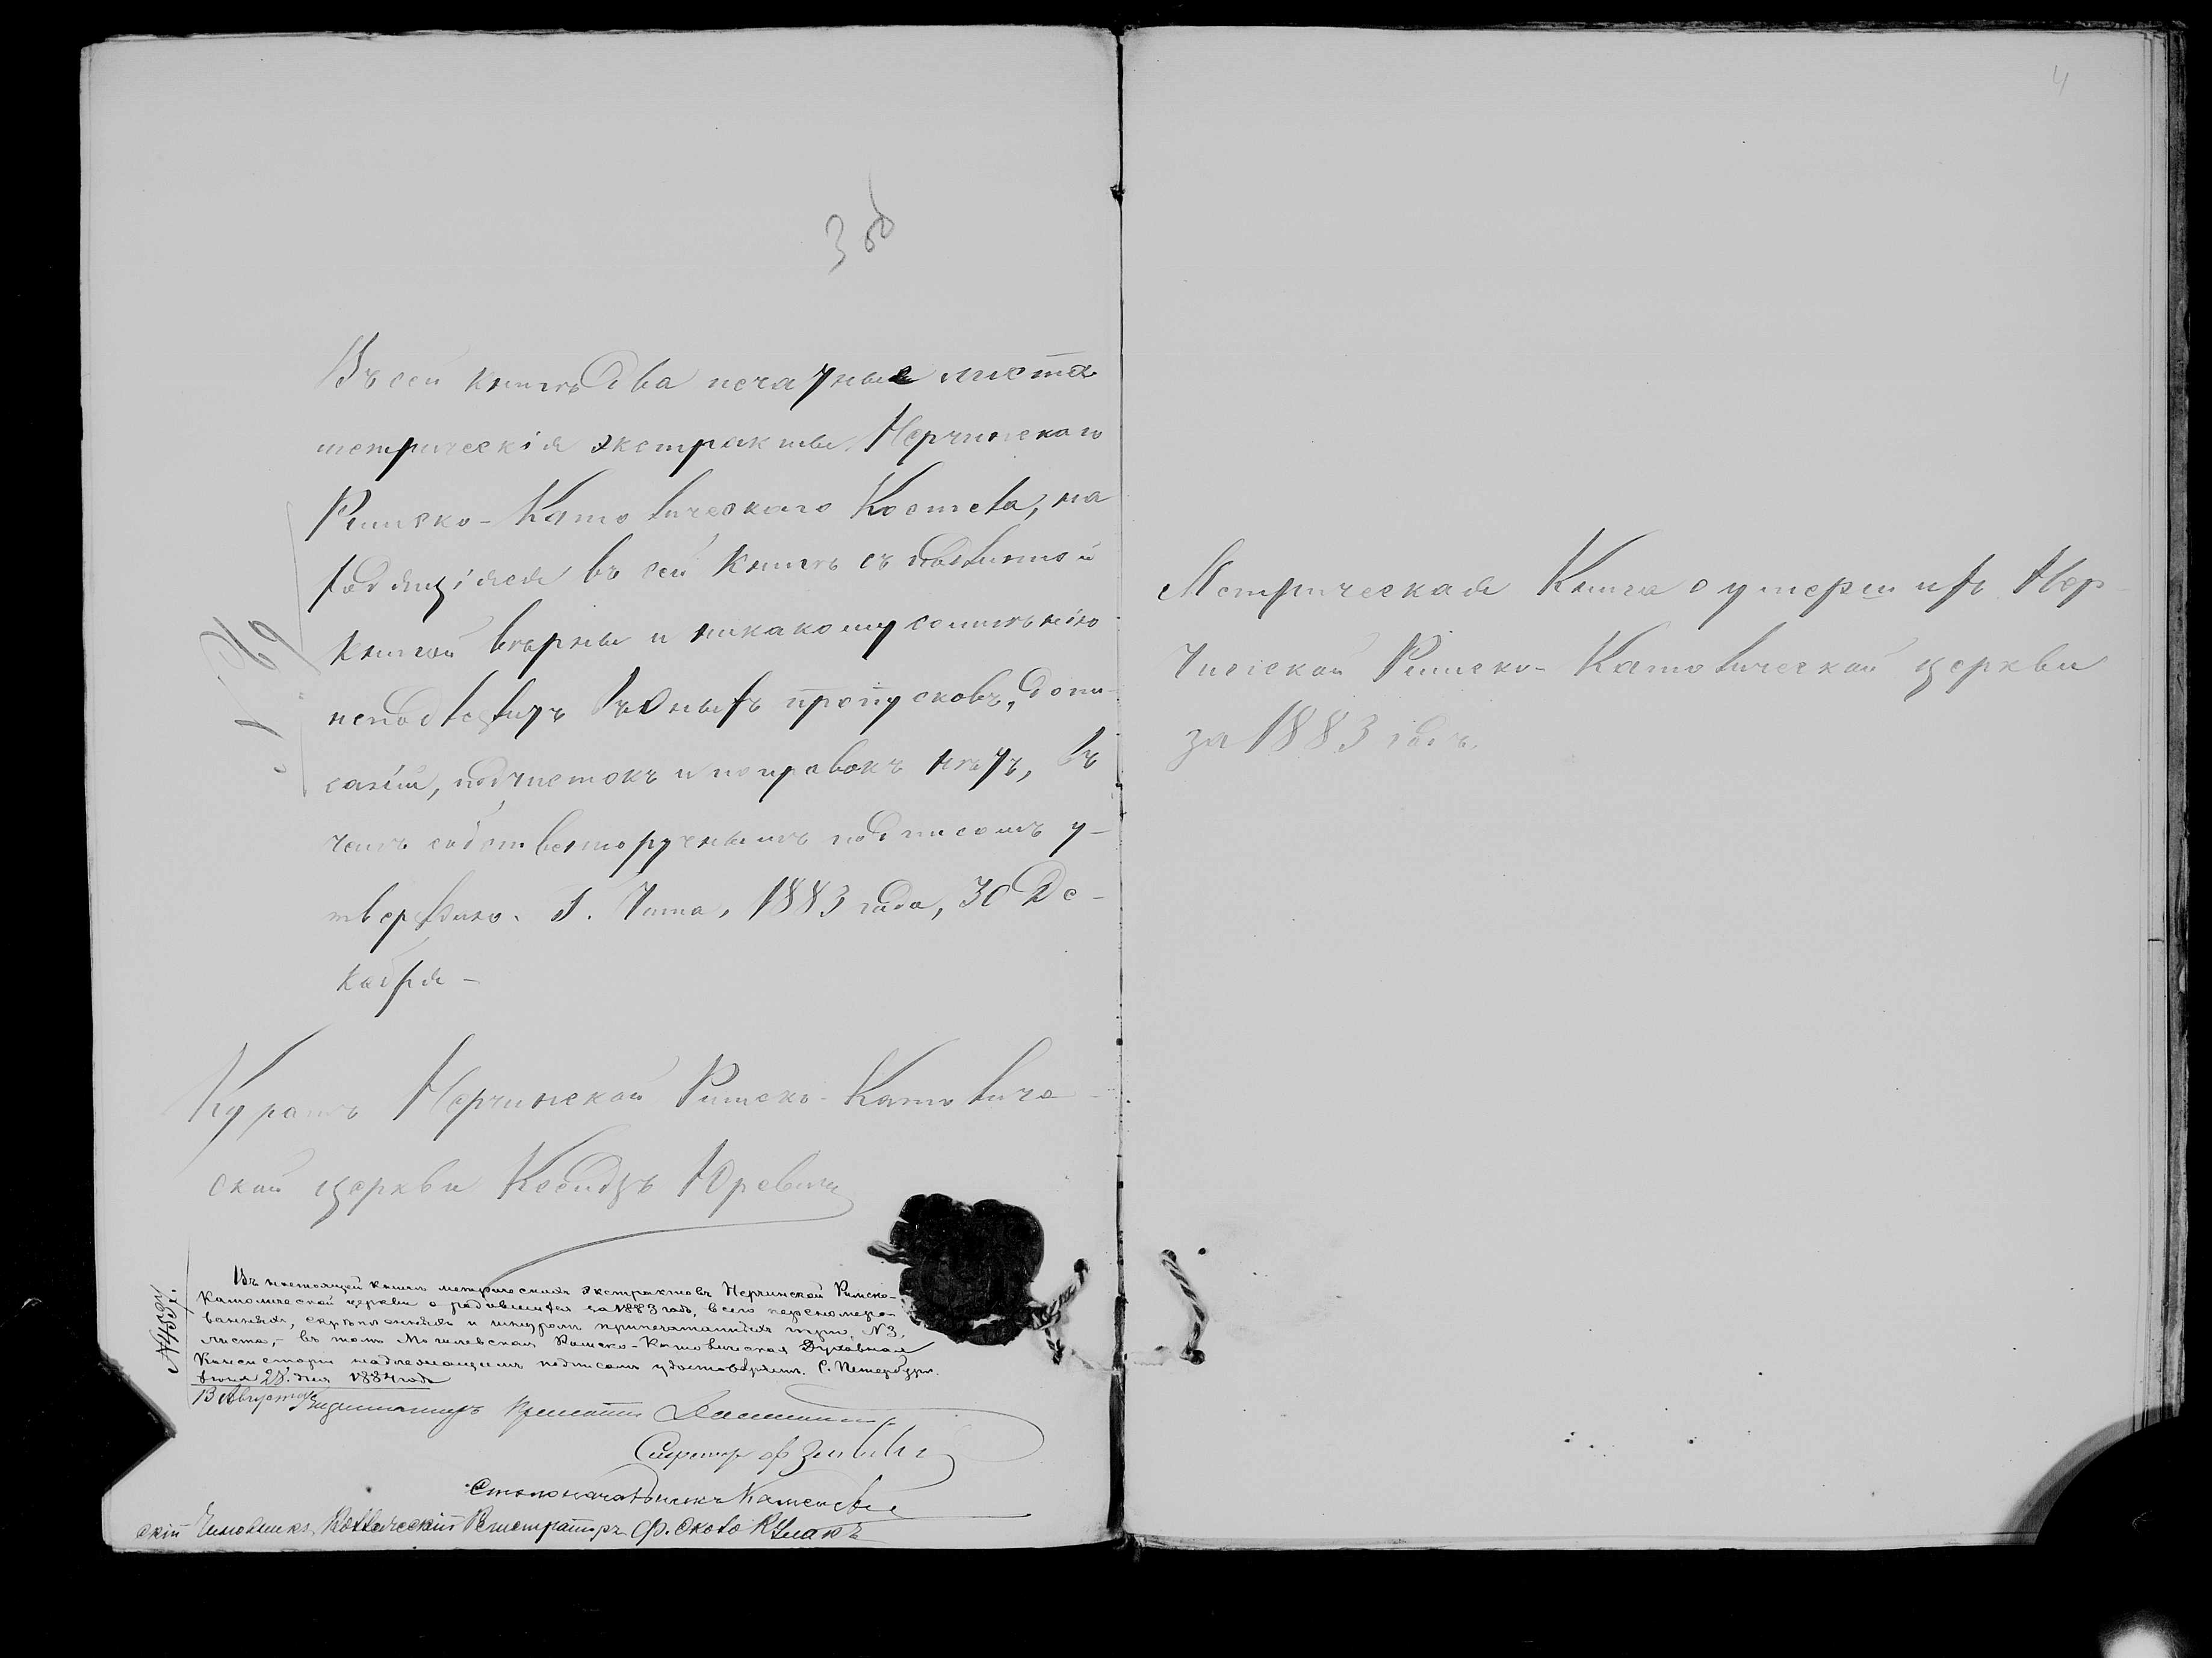 3 об
Въ сей книгѣ два печатныхъ листа
метрическія экстракты Нерчинскаго
Римско-Католическаго Костела, на
ходящіяся въ сей книгѣ съ подлинной
книгой вѣрны и никакому сомнѣнію
неподлежитъ пропусковъ, допи-
саній, подчистокъ и поправокъ нѣтъ, въ
чемъ собственноручнымъ подписомъ у-
тверждаю. Г. Чита, 1883 года, 30 Де-
кабря –
Куратъ Нерчинской Римско-Католиче-
ской церкви Ксендзъ Юревичъ
№ 4539/г.
Въ настоящей книгѣ метрическихъ экстрактовъ Нерчинской Римско-
Католической церкви о родившихся за 1883 годъ, всего перенумеро-
ванныхъ, скрѣпленныхъ и шнуромъ припечатанныхъ три, № 3,
листа, – въ томъ Могилевская Римско-Католическая Духовная
Консисторія надлежащимъ подписомъ удостовѣряетъ. С. Петербургъ.
Іюня 28 дня 1884 года
13 Августа
Секретарь
Столоначальникъ
скій Чиновникъ, Коллежскій Регистраторъ Ф. Около-Кулакъ
4
Метрическая Книга о умершихъ Нер-
чинской Римско-Католической церкви
за 1883 годъ.